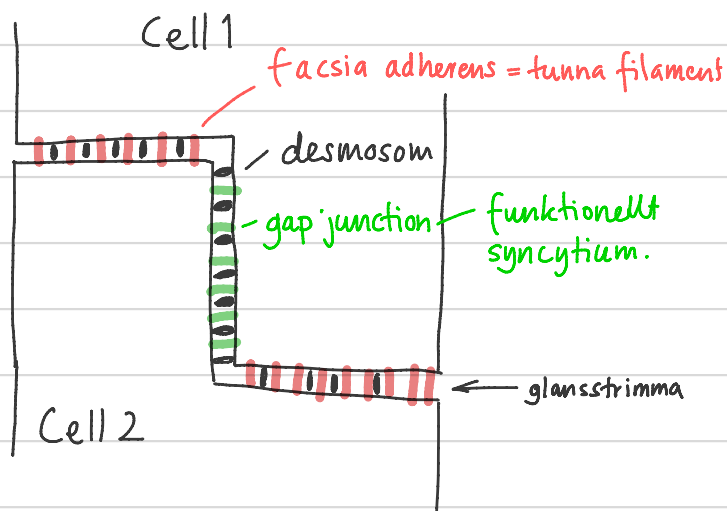 Cell 1
facsia adherens = tunna filament
desmosom
gap junction
funktionellt
syncytium.
glansstrimma
Cell 2